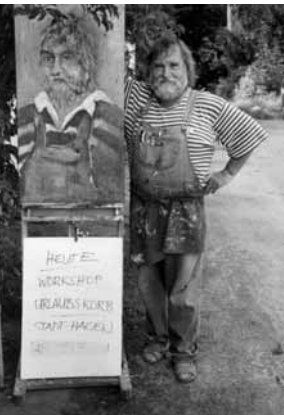 HEUTE
WORKSHOP
URLAUBSKORB
STADT HAGEN